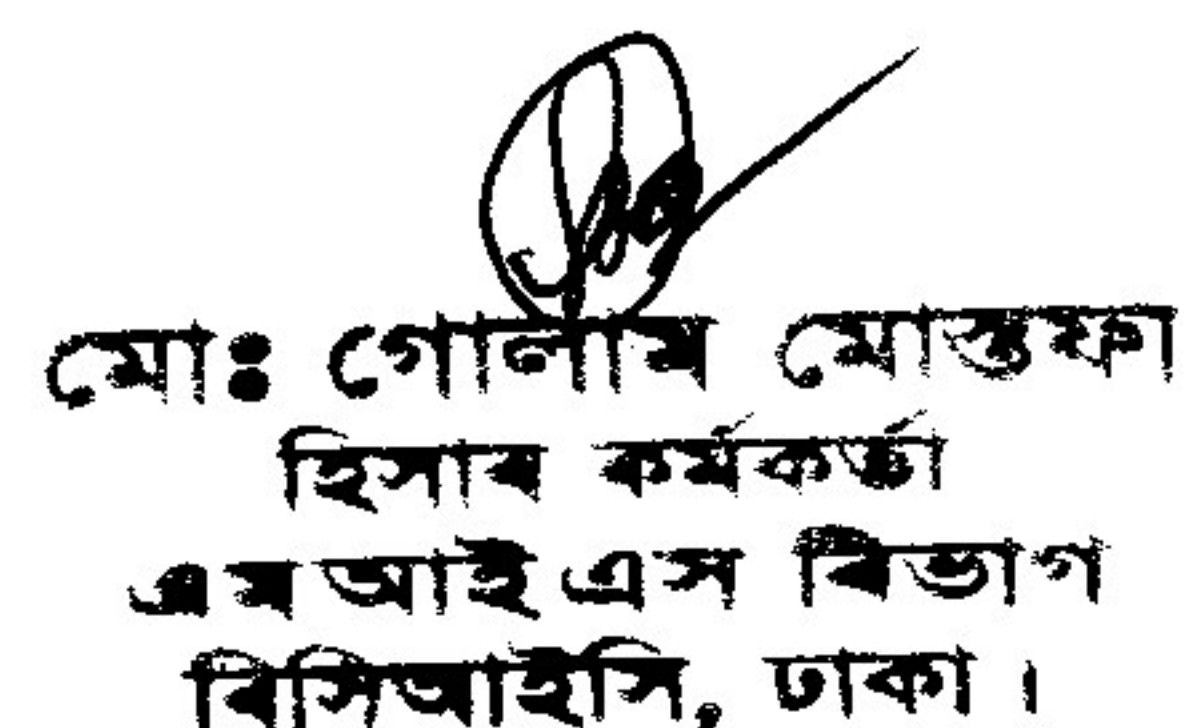 মো: গোলাম মোস্তফা
হিসাব কর্মকর্তা
এমআইএস বিভাগ
বিসিআইসি, ঢাকা ।